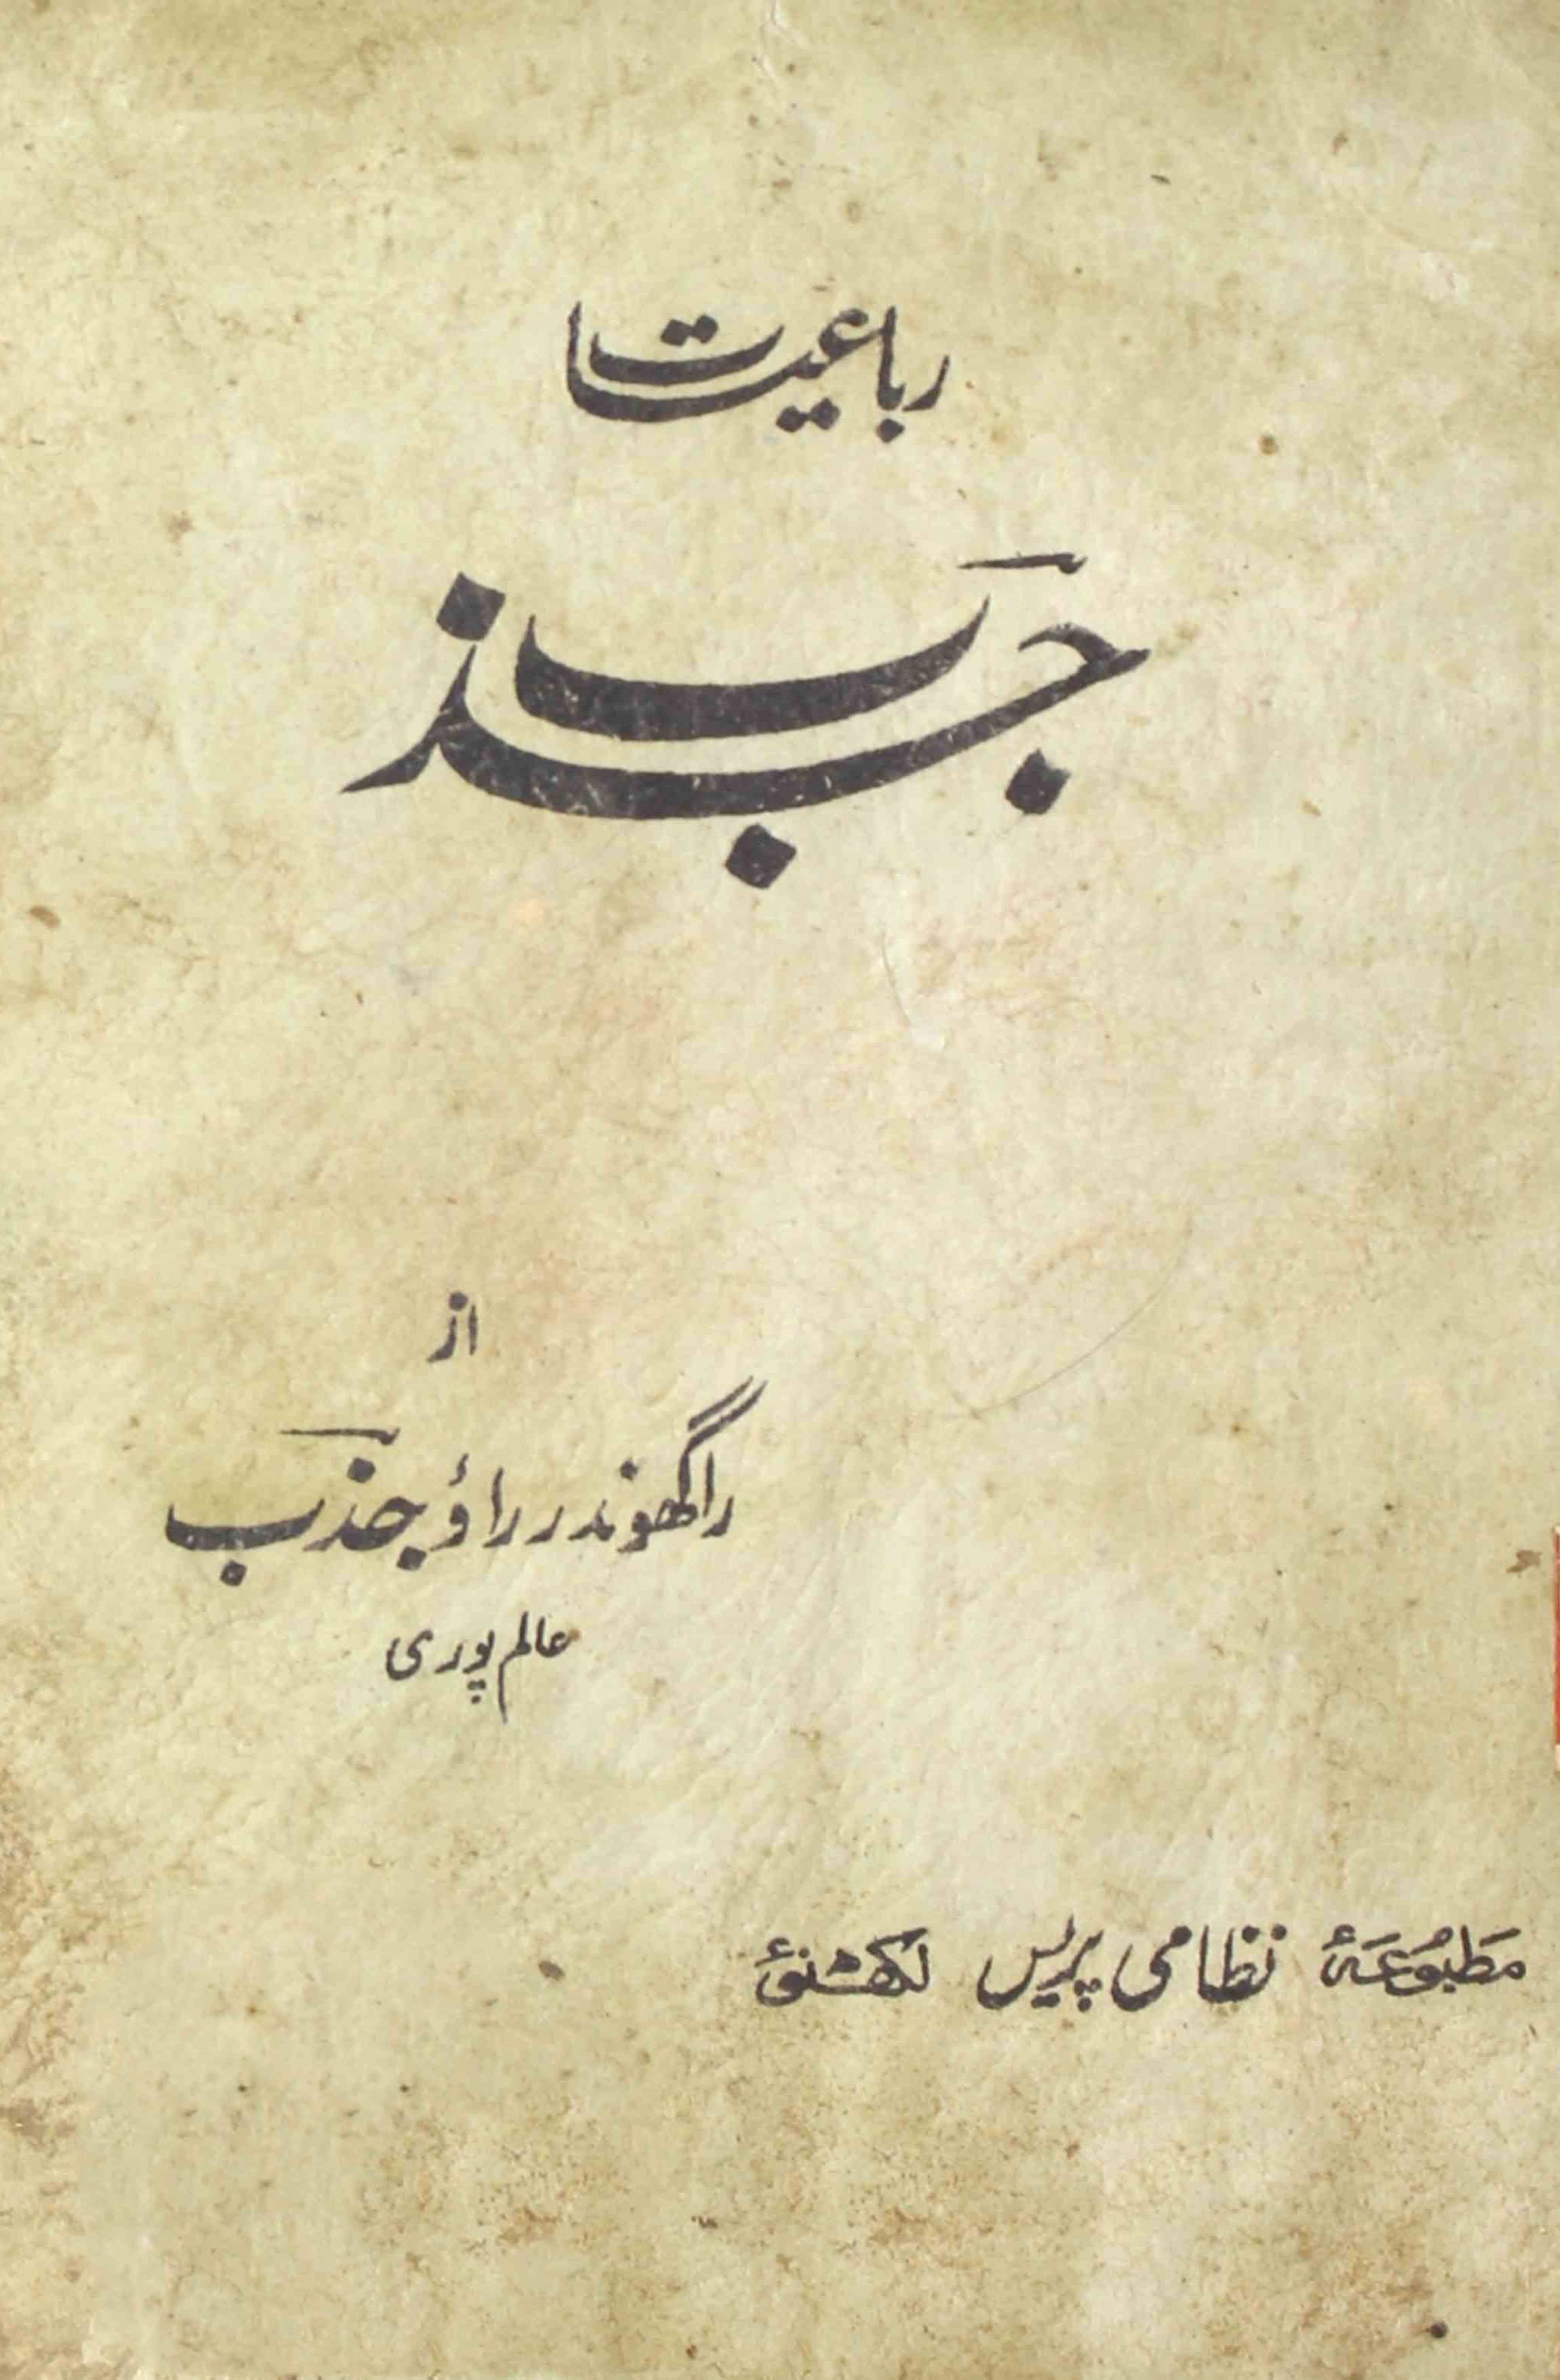 رباعیات
جذب
از
راگھوندر راؤ جذب
عالم پوری
مطبوعۂ نظامی پریس لکھنؤ